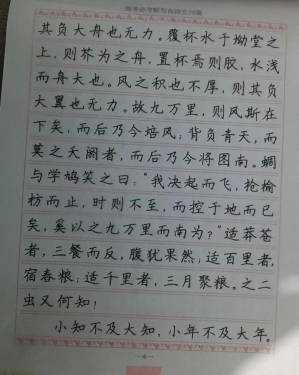 高考必考新写古诗文72篇
其负大舟也无力。覆杯水于坳堂之
上，则芥为之舟，置杯焉则胶，水浅
而舟大也。风之积也不厚，则其负
大翼也无力。故九万里，则风斯在
下矣，而后乃今培风；背负青天，而
莫之夭阏者，而后乃今将图南。蜩
与学鸠笑之曰：“我决起而飞，抢榆
枋而止，时则不至，而控于地而已
矣，奚以之九万里而南为？”适莽苍
者，三餐而反，腹犹果然；适百里者，
宿舂粮；适千里者，三月聚粮。之二
虫又何知！
小知不及大知，小年不及大年。
—4—